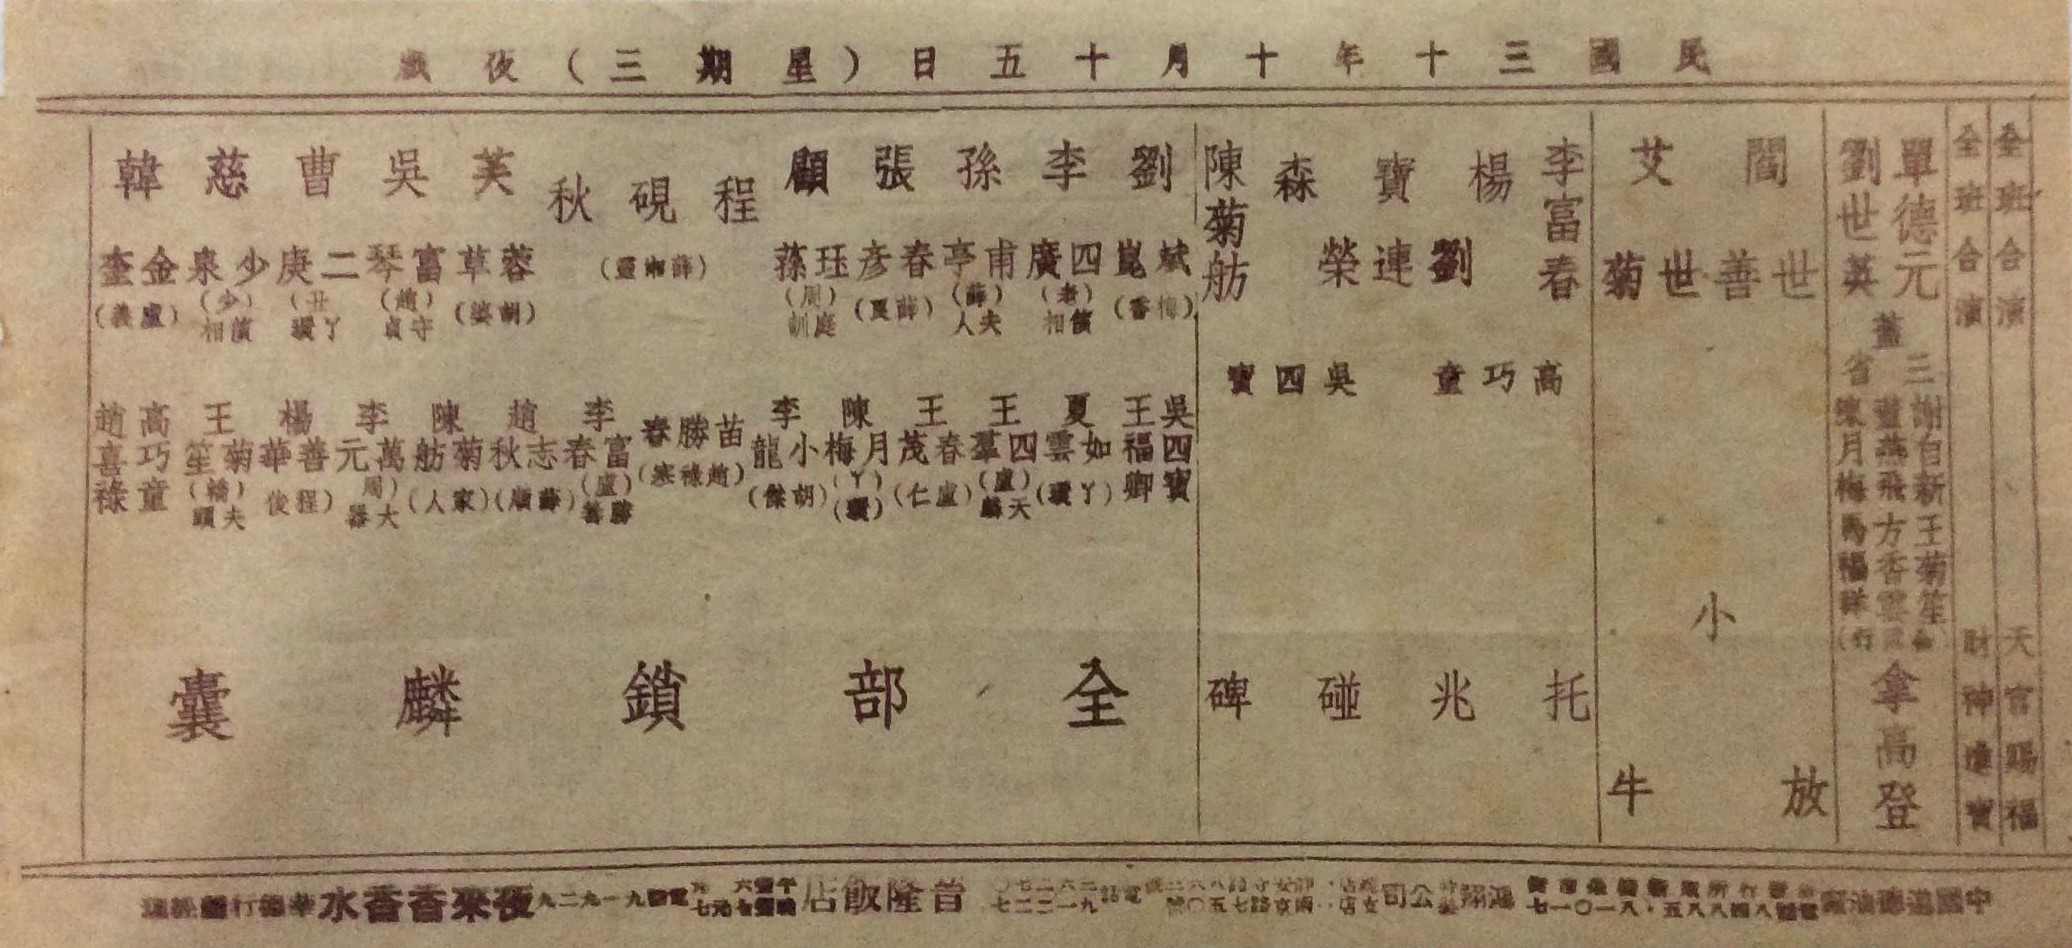 民國三十年十月十五日(星期三)夜戲
全班合演
天官賜福
全班合演
財神進寶
單德元
劉世英
董三省
謝自新
董燕飛
陳月梅
王菊笙
方香雲
馬福祥
拿高登
閻世善
艾世菊
小放牛
李富春
楊寶森
劉連榮
陳菊舫
高巧童
吳四寶
托兆碰碑
劉斌崑(梅香)
李四廣(老儐相)
孫甫亭(薛夫人)
張春彦(薛夏)
顧珏蓀(周庭訓)
程硯秋(薛湘靈)
芙蓉草(胡婆)
吳富琴(趙守貞)
曹二庚(丑丫環)
慈少泉(少儐相)
韓金奎(盧義)
吳四寶
王福卿
夏如雲(丫環)
王四羣(盧天麟)
王春茂(盧仁)
陳月梅(丫環)
李小龍(胡傑)
苗勝春(趙祿寒)
李富春(盧勝籌)
趙志秋(薛順)
陳菊舫(家人)
李萬元(周大器)
楊善華(程俊)
王菊笙(轎夫頭)
高巧童
趙喜祿
全部鎖麟囊
中國 鴻翔公司 晋隆飯店 夜來香香水